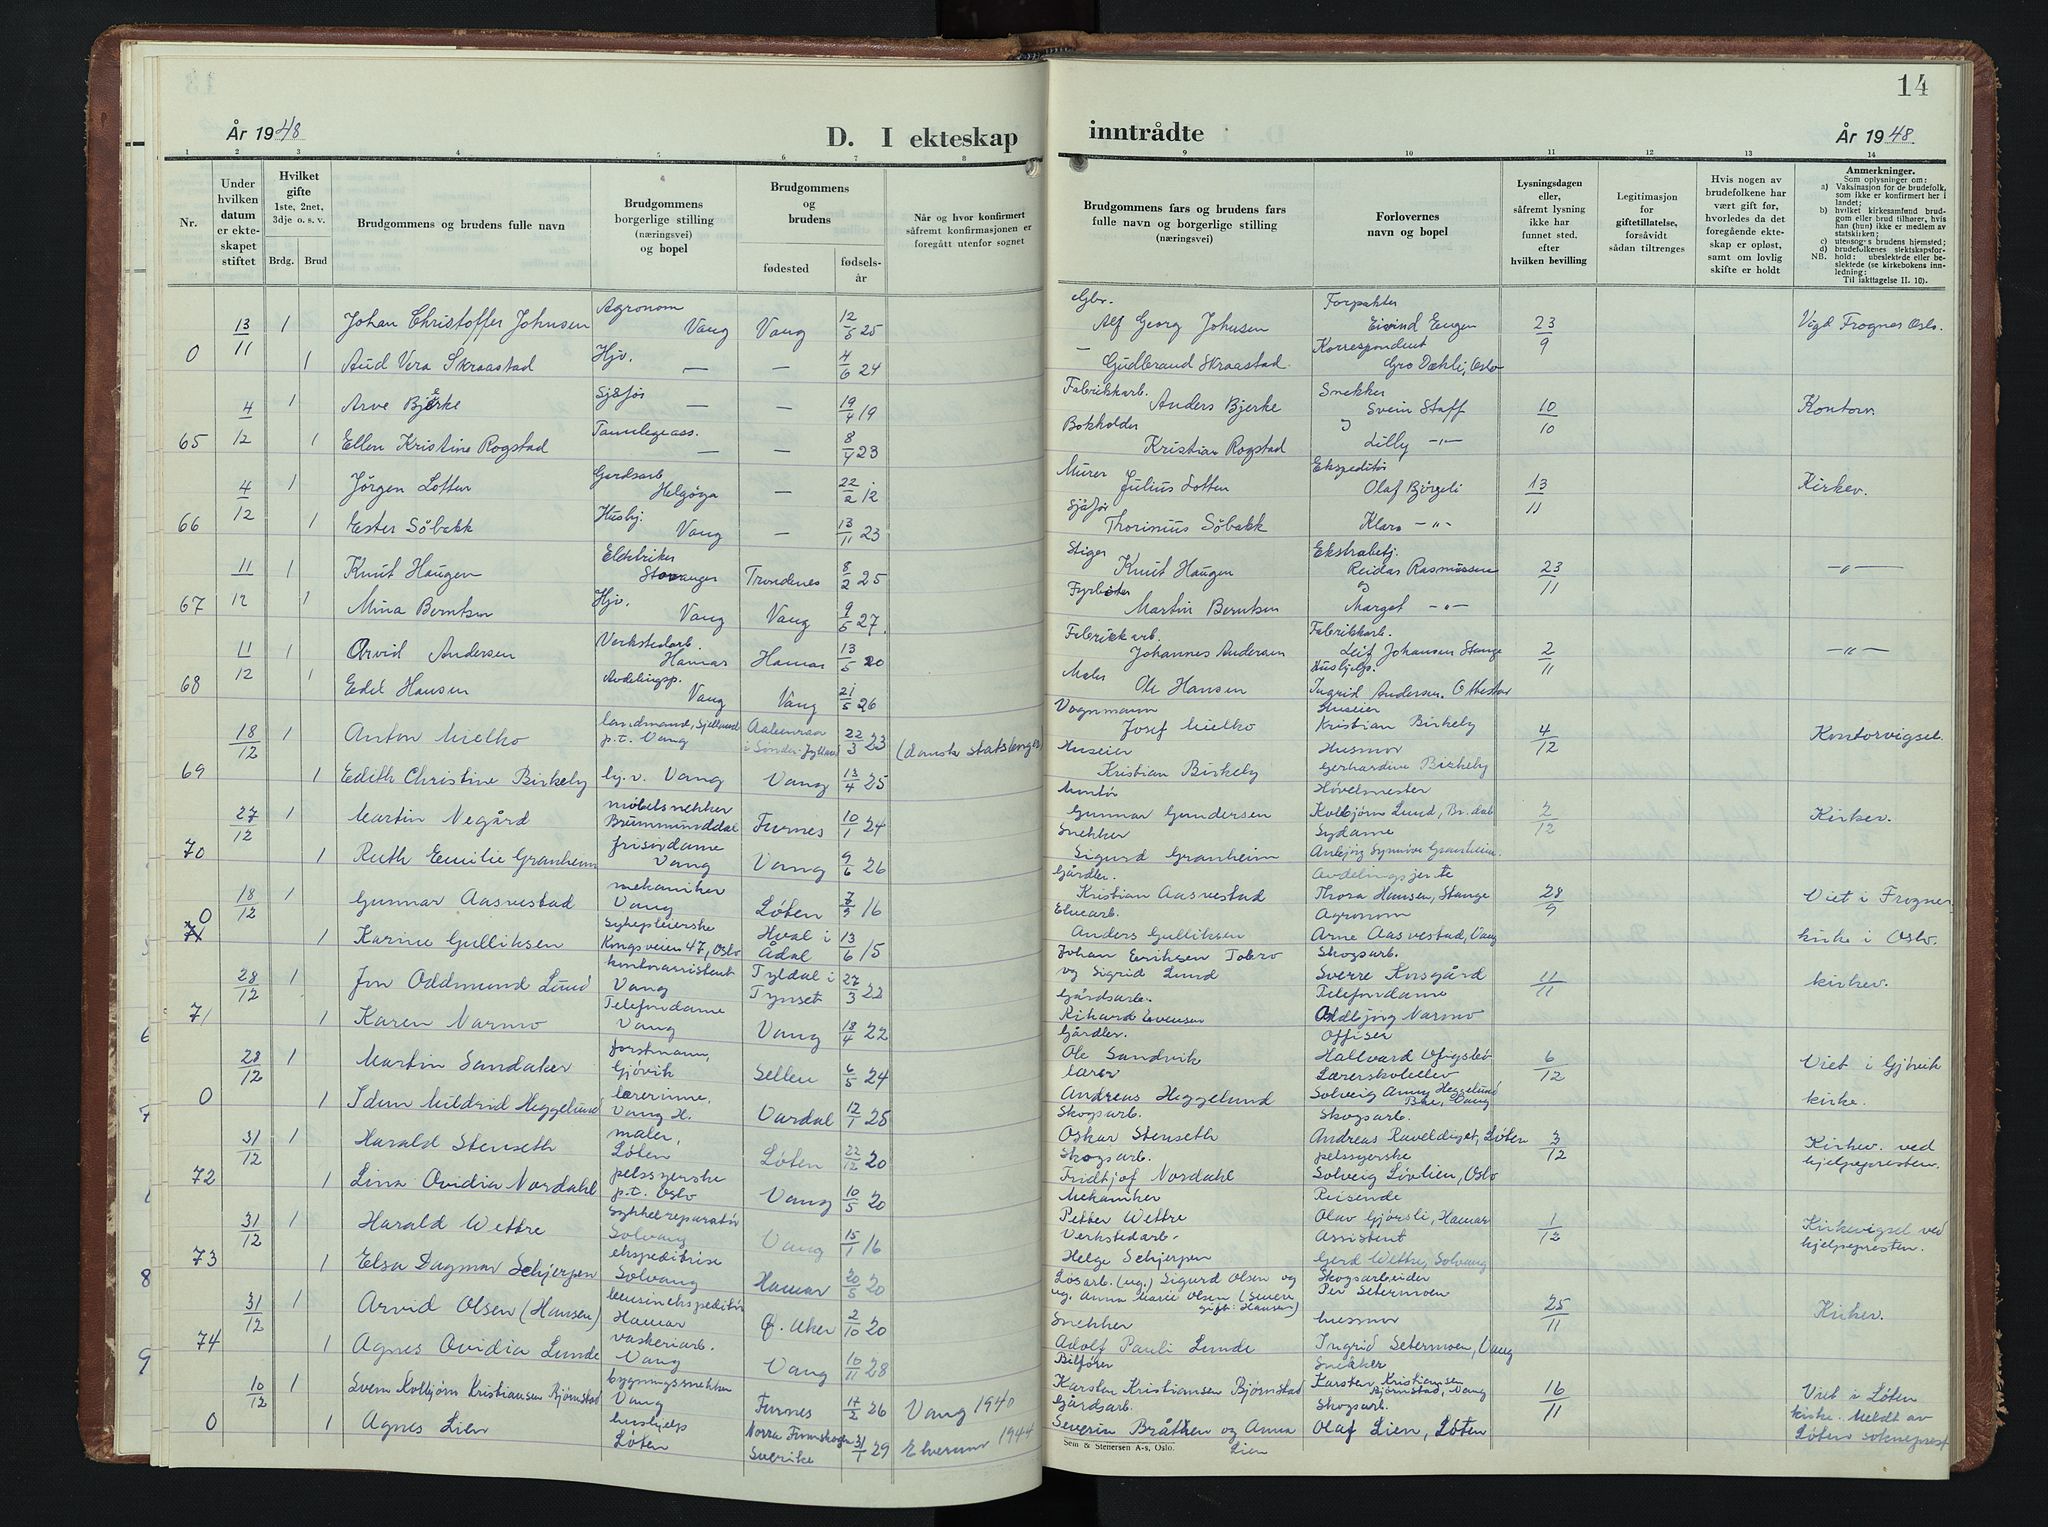 År 1948
D. I ekteskap
inntrådte
År 1948
14
1 2 3 4 5 6 7 8 9 10 11 12 13 14
Nr.
Under hvilken datum er ekteskapet stiftet
Hvilket gifte 1ste, 2net, 3dje o. s. v.
Brdg. Brud
Brudgommens og brudens fulle navn
Brudgommens borgerlige stilling (næringsvei) og bopel
Brudgommens og brudens
fødested
fødselsår
Når og hvor konfirmert såfremt konfirmasjonen er foregått utenfor sognet
Brudgommens fars og brudens fars fulle navn og borgerlige stilling (næringsvei)
Forlovernes navn og bopel
Lysningsdagen eller, såfremt lysning ikke har funnet sted, efter hvilken bevilling
Legitimasjon for giftetillatelse, forsåvidt sådan tiltrenges
Hvis nogen av brudefolkene har vært gift før, hvorledes da det foregående ekteskap er opløst, samt om lovlig skifte er holdt
Anmerkninger.
Som oplysninger om:
a) Vaksinasjon for de brudefolk, som ikke er konfirmert her i landet;
b) hvilket kirkesamfund brudgom eller brud tilhører, hvis han (hun) ikke er medlem av statskirken;
c) utensogns brudens hjemsted;
d) brudefolkenes slektskapsforhold: ubeslektede eller beslektede (se kirkebokens innledning:
NB.
Til iakttagelse II. 10).
0 13/11 1 Johan Christoffer Johnsen Agronom Vang Vang 12/5 25 Gbr. Alf Georg Johnsen Forpakter Eivind Engen 23/9 Vigd Frogner Oslo.
1 Aud Vera Skraastad Hjv. — — 4/6 24 — Gudbrand Skraastad Korrespondent Gro Dæhli, Oslo
65 4/12 1 Arve Bjerke Sjåfør — — 19/4 19 Fabrikkarb. Anders Bjerke Snekker Svein Staff 10/10 Kontorv.
1 Ellen Kristine Rogstad Tannlegeass. — — 8/4 23 Bokholder Kristian Rogstad og Lilly —"—
66 4/12 1 Jørgen Lotten Gardsarb Helgøya — 22/2 12 Murer Julius Lotten Ekspeditør Olaf Bjørgeli 13/11 Kirkev.
1 Ester Søbakk Hushj. Vang — 13/11 23 Sjåfør Thorinius Søbakk Klara —"—
67 11/12 1 Knut Haugen Elektriker Stavanger Trondenes 8/2 25 Stiger Knut Haugen Ekstrabetj. Reidar Rasmussen 23/11 —"—
1 Mina Berntsen Hjv. Vang Vang 9/5 27. Fyrbøter Martin Berntsen og Margot —"—
68 11/12 1 Arvid Andersen Verkstedarb. Hamar Hamar 13/5 20 Fabrikkarb. Johannes Andersen Fabrikkarb. Leif Johansen Stange 2/11 —"—
1 Edel Hansen Avdelingsp. Vang Vang 21/5 26 Maler Ole Hansen Hushjelp. Ingrid Andersen. Ottestad
69 18/12 1 Anton Mielko landmand, Sjelland p.t. Vang Aabenraa i Sønder-Jylland 22/3 23 (dansk statsborger) Vognmann Josef Mielko Huseier Kristian Birkeby 4/12 Kontorvigsel.
1 Edith Christine Birkeby hj.v. Vang Vang 13/4 25 Huseier Kristian Birkeby Husmor Gerhardine Birkeby
70 27/12 1 Martin Negård møbelsnekker Brummunddal Furnes 10/1 24 Montør Gunnar Gundersen Høvelmester Kolbjørn Lund, Br.dal 2/12 Kirkev.
1 Ruth Emilie Granheim frisørdame Vang Vang 9/6 26 Snekker Sigurd Granheim Sydame Anbjørg Synnøve Granheim.
0 18/12 1 Gunnar Aasvestad mekaniker Vang Løten 7/9 16 Gårdbr. Kristian Aasvestad Avdelingsjente Thora Hansen, Stange 28/9 Viet i Frogner
1 Karine Gulliksen Sykepleierske Kongsveien 47, Oslo Hval i Ådal 13/6 15 Elvearb. Anders Gulliksen Agronom Arne Aasvestad, Vang kirke i Oslo.
71 28/12 1 Jon Oddmund Lund kontorassistent Vang Tyldal i Tynset 27/3 22 Johan Eriksen Tobro og Sigrid Lund Skogsarb. Sverre Korsgård 11/11 kirkev.
1 Karen Narmo Telefondame Vang Vang 18/4 22 Gårdsarb. Rikard Evensen Telefondame Oddbjørg Narmo
0 28/12 1 Martin Sandaker forstmann, Gjøvik Sellen 6/5 24 Gårdbr. Ole Sandvik Offiser Hallvard 6/12 Viet i Gjøvik
1 Idun Mildrid Heggelund lærerinne, Vang H. Vardal 12/1 25 lærer Andreas Heggelund Lærerskolelev Solveig Anny Heggelund Vang kirke.
72 31/12 1 Harald Stenseth maler, Løten Løten 22/12 20 Skogsarb. Oskar Stenseth Skogsarb. Andreas Raveldiget, Løten 3/12 Kirkev. ved hjelpepresten.
1 Lina Ovidia Nordahl pelssyerske p.t. Oslo Vang 10/5 20 Skogsarb. Fridtjof Nordahl pelssyerske Solveig Lövlien, Oslo
73 31/12 1 Harald Wettre Sykkelreparatör Solvang Vang 15/1 16 Mekaniker Petter Wettre Reisende Olav Gjørsli, Hamar 1/12 Kirkevigsel ved hjelpepresten.
1 Elsa Dagmar Schjerpen ekspeditrise Solvang Hamar 20/5 20 Verkstedarb. Helge Schjerpen Assistent Gerd Wettre, Solvang
74 31/12 1 Arvid Olsen (Hansen) bensinekspeditör Hamar Ø. Aker 2/10 20 Løsarb. (ug.) Sigurd Olsen og ug. Anna Marie Olsen (senere gift: Hansen) Skogsarbeider Per Setermoen 25/11 Kirkev.
1 Agnes Ovidia Lunde vaskeriarb. Vang Vang 10/11 28 Snekker Adolf Pauli Lunde husmor Ingrid Setermoen, Vang
0 10/12 1 Svein Kolbjørn Kristiansen Bjørnstad bygningssnekker Vang Furnes 17/2 26 Vang 1940 Bilfører Karsten Kristiansen Bjørnstad Snekker Karsten Kristiansen Bjørnstad, Vang 16/11 Viet i Løten
1 Agnes Lien hushjelp Løten Norra Finnskogen Sverike 31/7 29 Elverum 1944 Gårdsarb. Severin Bråthen og Anna Lien Skogsarb. Olaf Lien, Løten kirke. Meldt av Løten sokneprest
Sem & Stenersen A-s, Oslo.